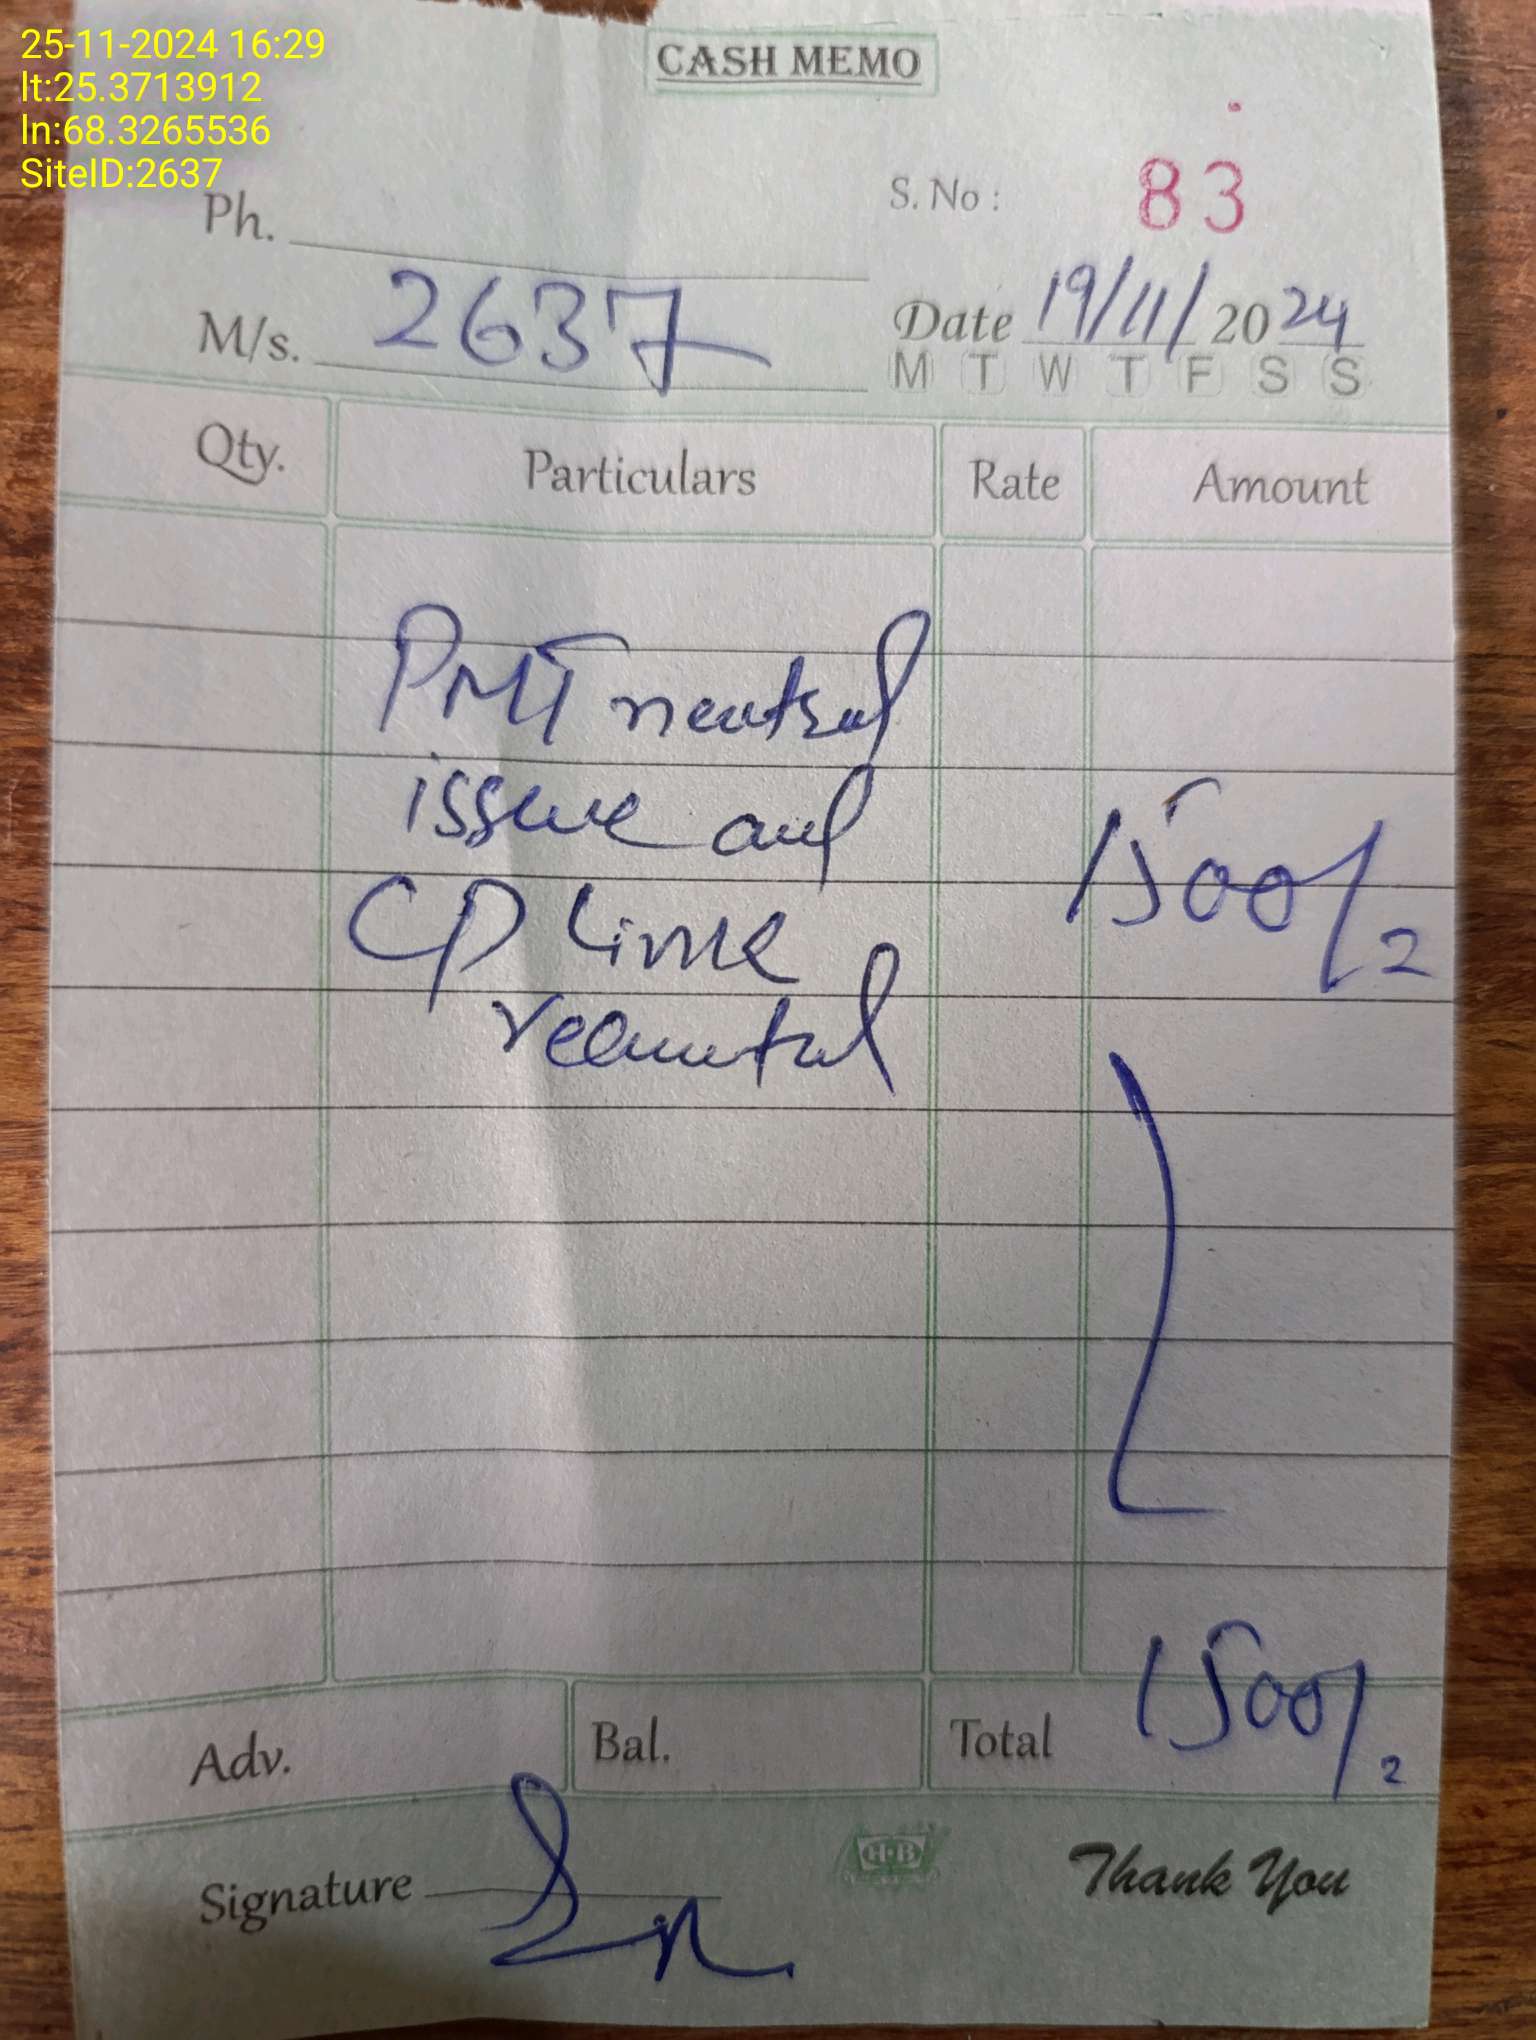 25-11-2024 16:29
lt:25.3713912
ln:68.3265536
SiteID:2637
CASH MEMO
S. No : 83
Ph.
M/s. 2637
Date 19/11/2024
M T W T F S S
Qty. Particulars Rate Amount
PMT neutral
issue and
CP Link
1500/2
Adv. Bal. Total 1500/2
Signature
H·B
Thank You